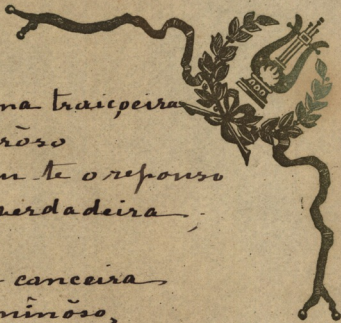 ma traiçoeira
rôso
te o repouso
verdadeira;
canceira
minôso,